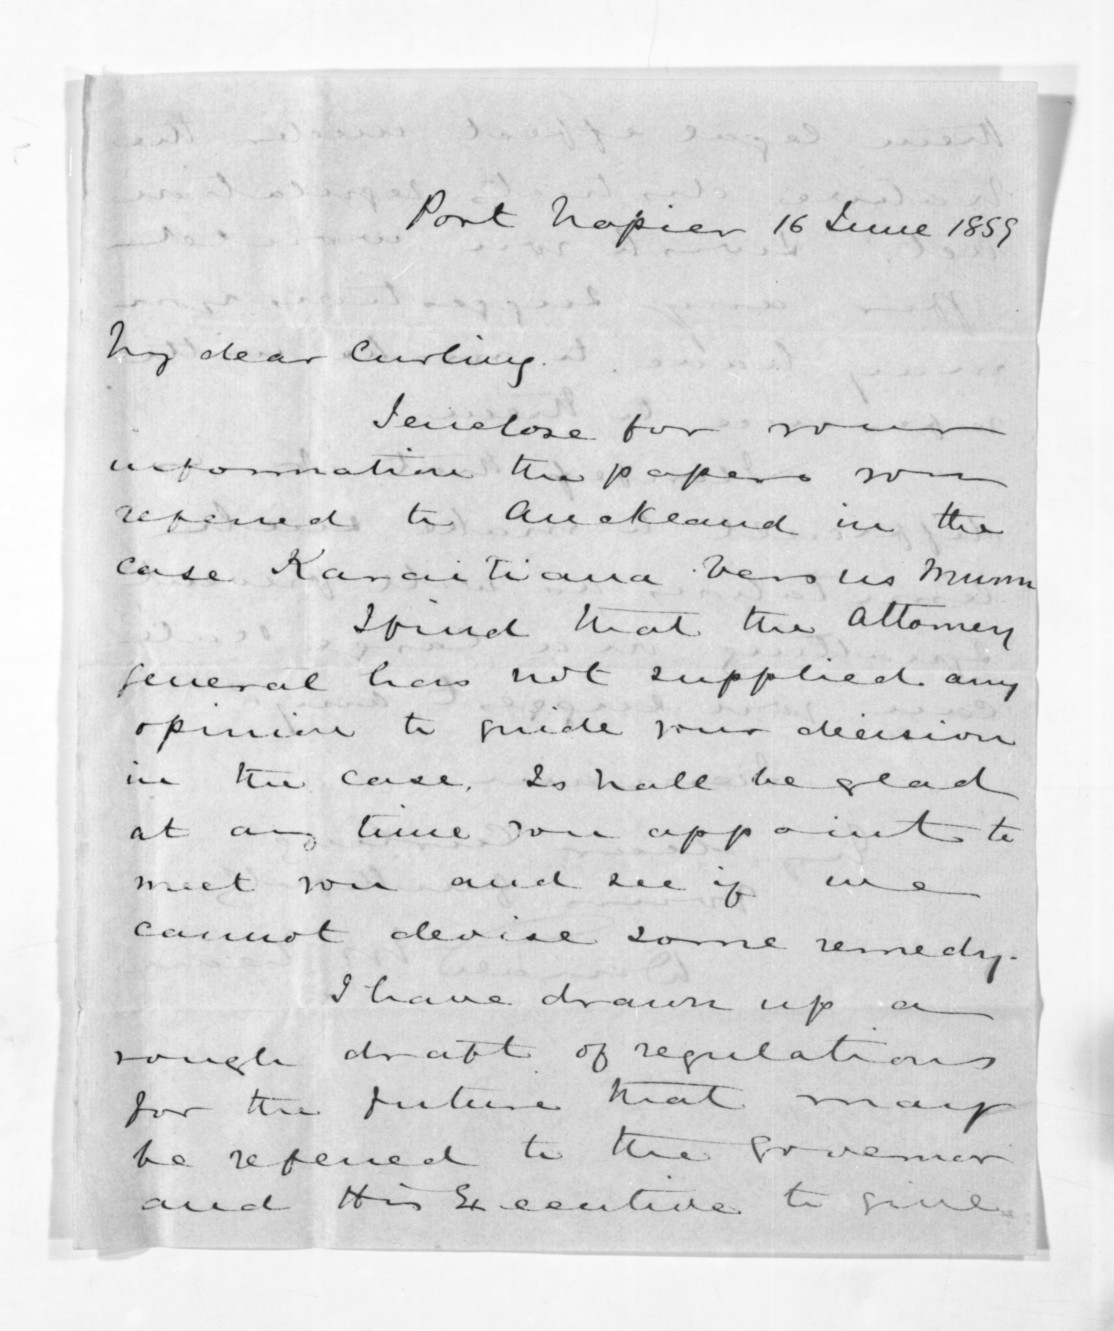 Port Napier 16 June 1859
My dear Curling.
I enclose for your
information the papers you
refered to Auckland in the
case Karaitiana versus Munn
I find that the Attorney
General has not supplied any
opinion to guide your decision
in the case. I shall be glad
at any time you appoint to
meet you and see if we
cannot devise some remedy.
I have drawn up a
rough draft of regulations
for the future that may
be refered to the Governor
and His Executive to give